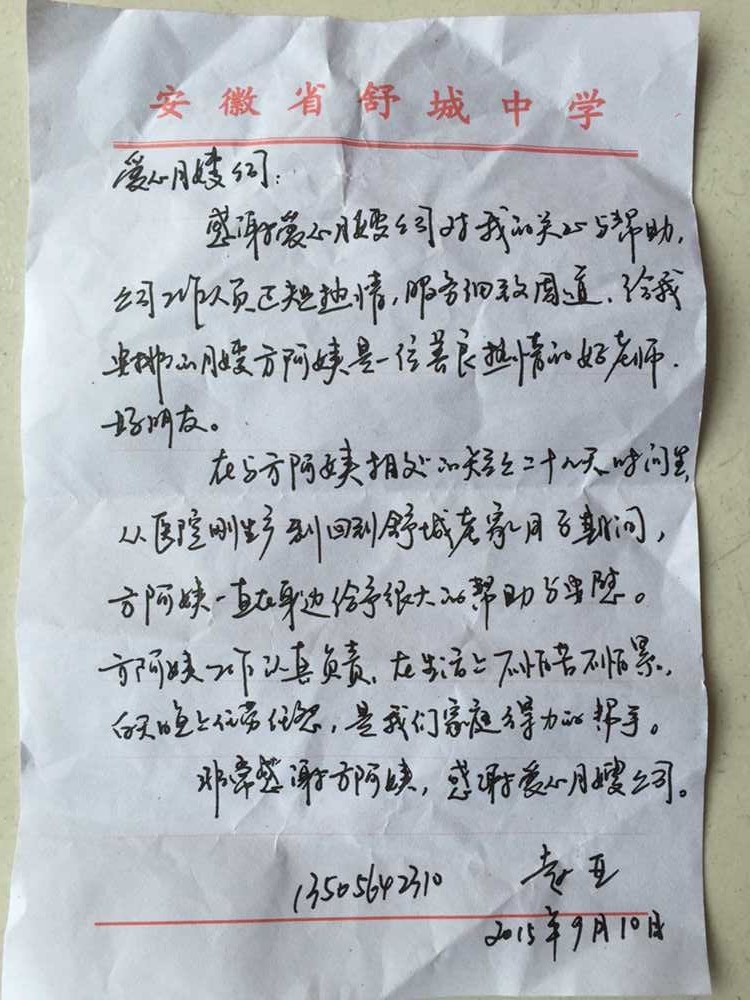 安徽省舒城中学
爱心月嫂公司：
感谢爱心月嫂公司对我的关心与帮助，
公司工作人员已短热情，服务细致周道，给我
安排的月嫂方阿姨是一位善良热情的好老师、
好朋友。
在与方阿姨相处的短短二十八天时间里
从医院刚生产到回到舒城老家月子期间，
方阿姨一直在身边给予很大的帮助与安慰。
方阿姨工作认真负责、在生活上不怕苦不怕累，
白天晚上任劳任怨，是我们家庭得力的帮手。
非常感谢方阿姨，感谢爱心月嫂公司。
13505642310
2015年9月10日